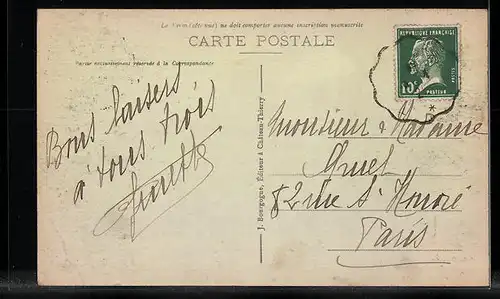 Le Recto (côté vue) ne doit comporter aucune inscription manuscrite
CARTE POSTALE
Partie exclusivement réservée à la Correspondance
REPUBLIQUE FRANÇAISE
10c
POSTES
PASTEUR
Bons baisers
à vous trois
J. Bourgogne, Éditeur à Château-Thierry
Monsieur & Madame
82 rue St Honoré
Paris